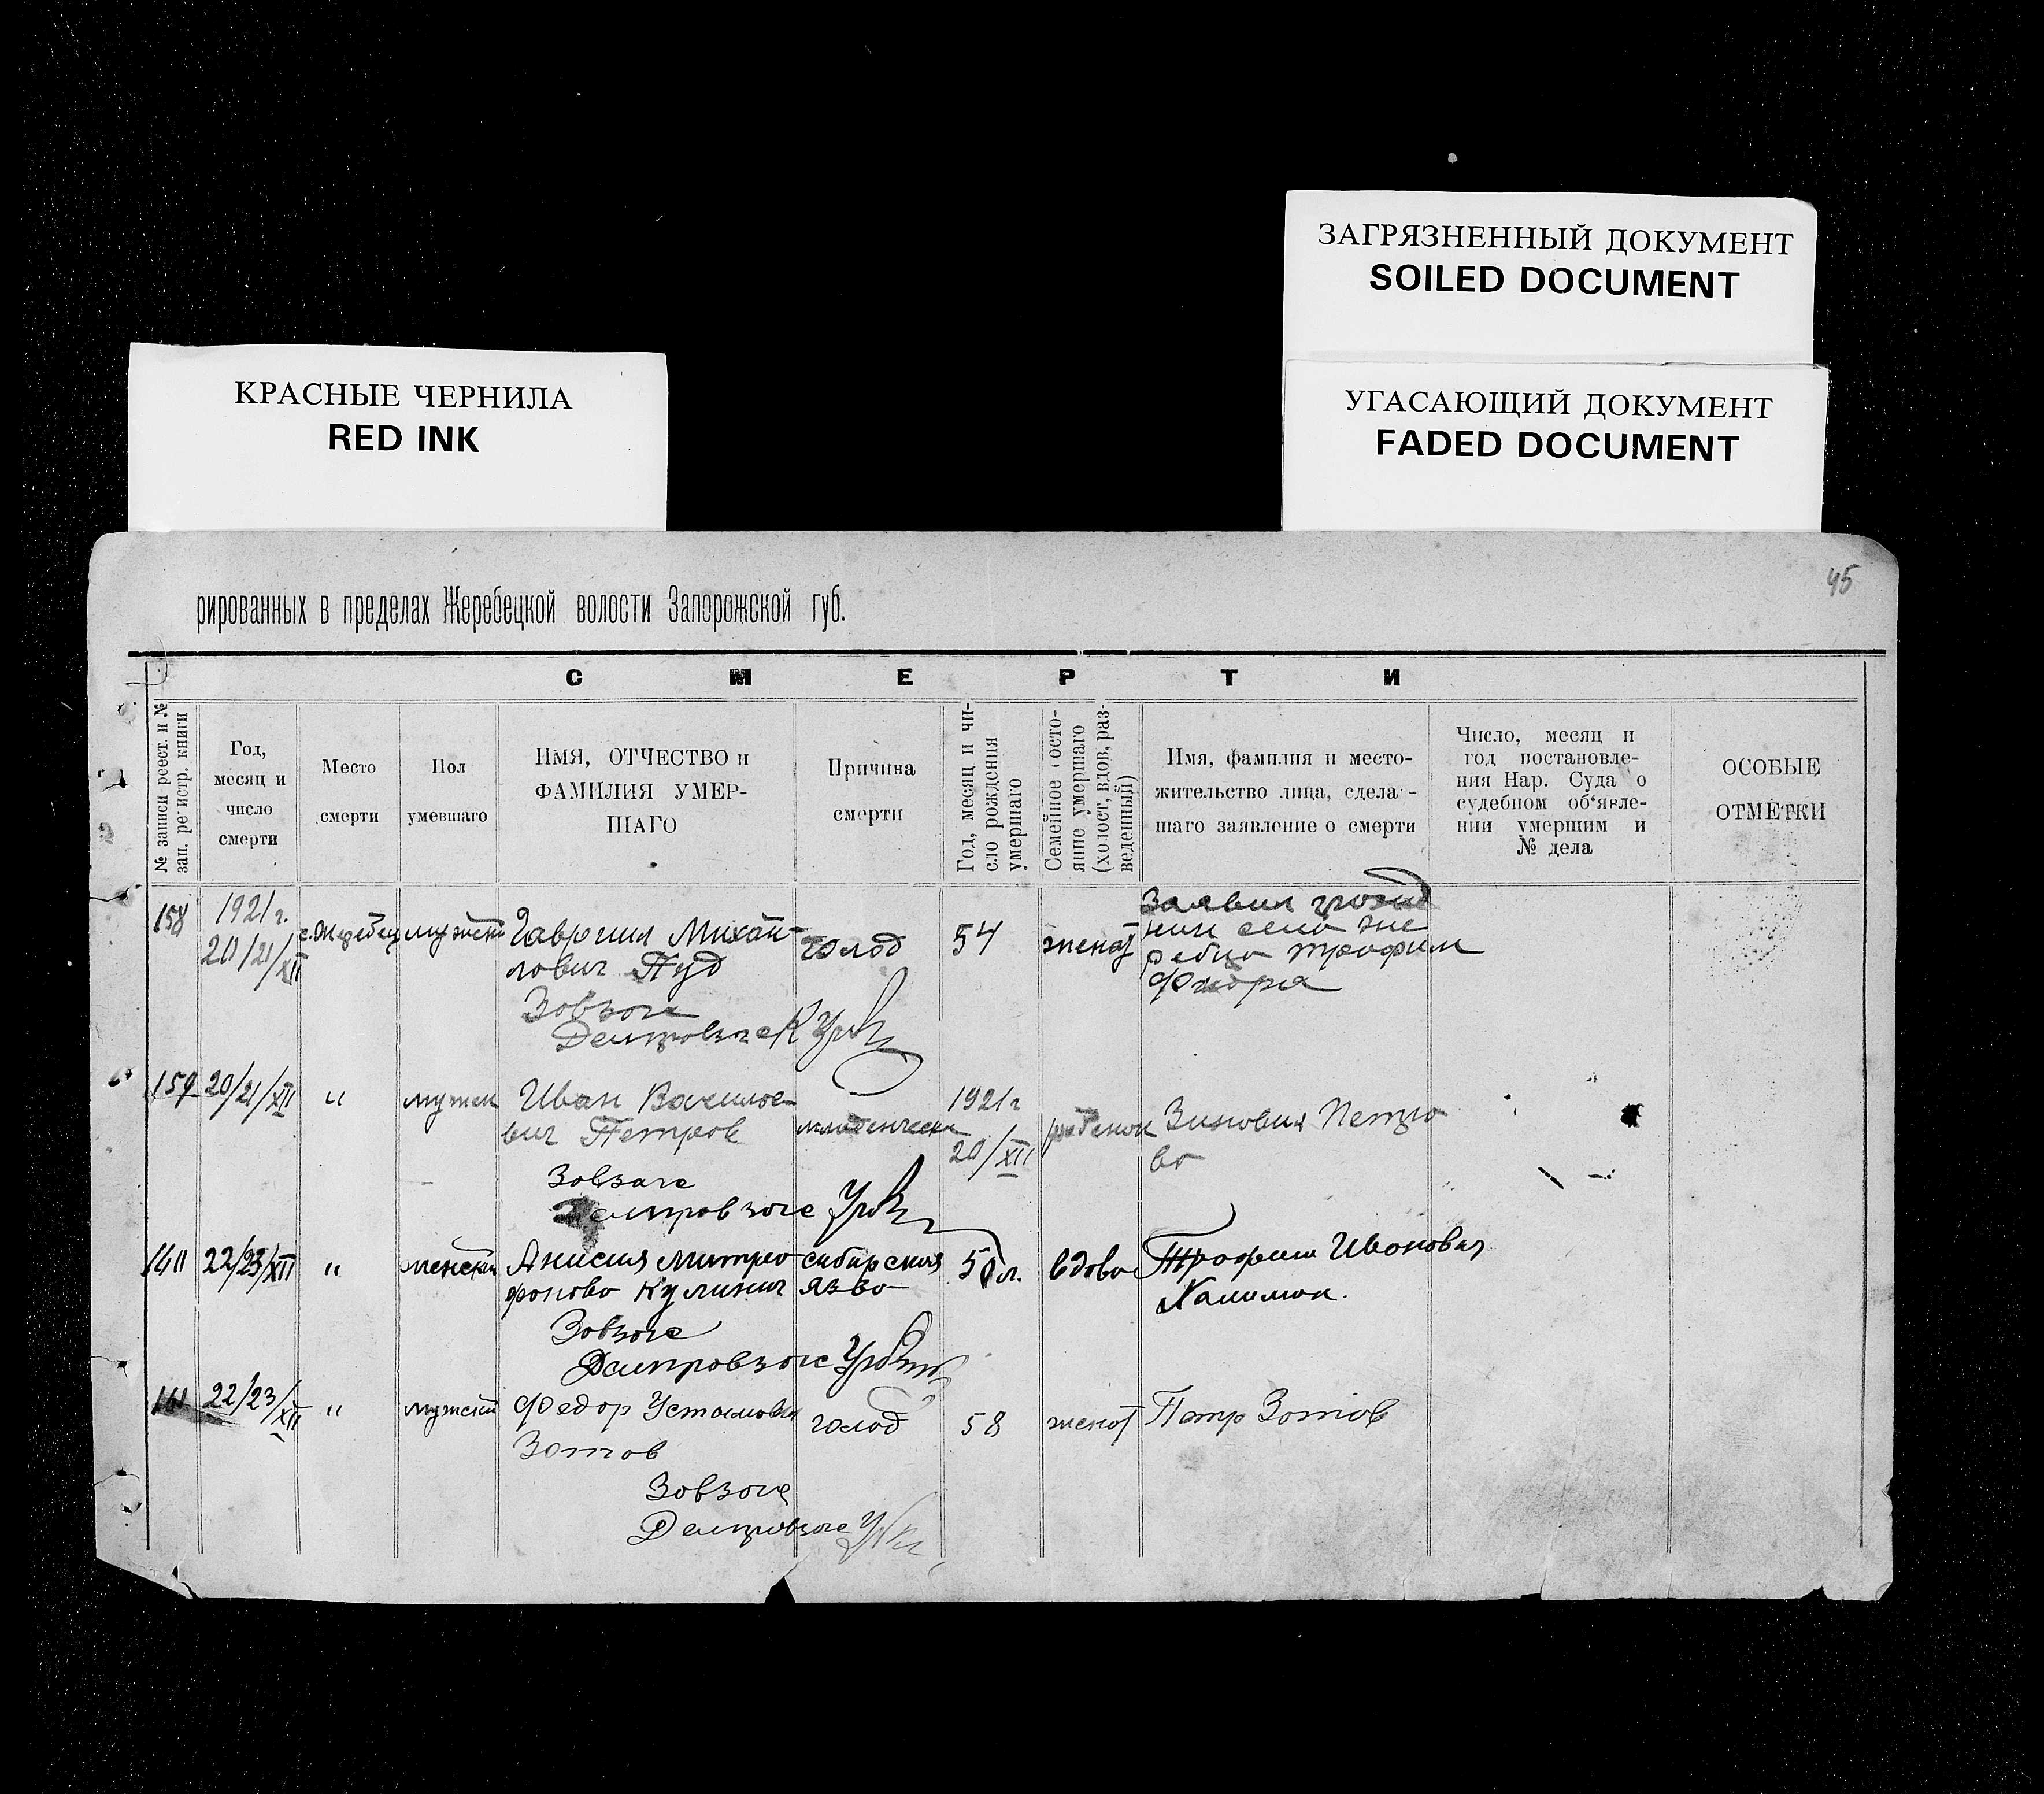 ЗАГРЯЗНЕННЫЙ ДОКУМЕНТ
SOILED DOCUMENT
КРАСНЫЕ ЧЕРНИЛА
RED INK
УГАСАЮЩИЙ ДОКУМЕНТ
FADED DOCUMENT
45
рированных в пределах Жеребецкой волости Запорожской губ.
СМЕРТИ
№ записи реест. и №
зап. регистр. книги
Год,
месяц и
число
смерти
Место
смерти
Пол
умевшаго
ИМЯ, ОТЧЕСТВО и
ФАМИЛИЯ УМЕР-
ШАГО
Причина
смерти
Год, месяц и чи-
сло рождения
умершаго
Семейное состо-
яние умершаго
(холост, вдов, раз-
веденный)
Имя, фамилия и место-
жительство лица, сдела-
шаго заявление о смерти
Число, месяц и
год постановле-
ния Нар. Суда о
судебном об'явле-
нии умершим и
№ дела
ОСОБЫЕ
ОТМЕТКИ
158
1921 г.
20/21/XII
с. Жеребец
Гавриил Михай-
лович Пуд
голод
54
женат
Заявил
нин села Же
ребца Трофим
159
20/21/XII
"
мужск
Иван Василье-
вич Петров
младенческ
1921 г
20/XII
ребенок
Зиновия Петро
во
22/23/XII
"
женский
Анисия Митро
фоново Кулинич
сибирская
язво
50 л.
вдово
Трофим Иванович
22/23/XII
"
мужский
Федор Устимович
Зотов
голод
58
женат
Петр Зотов